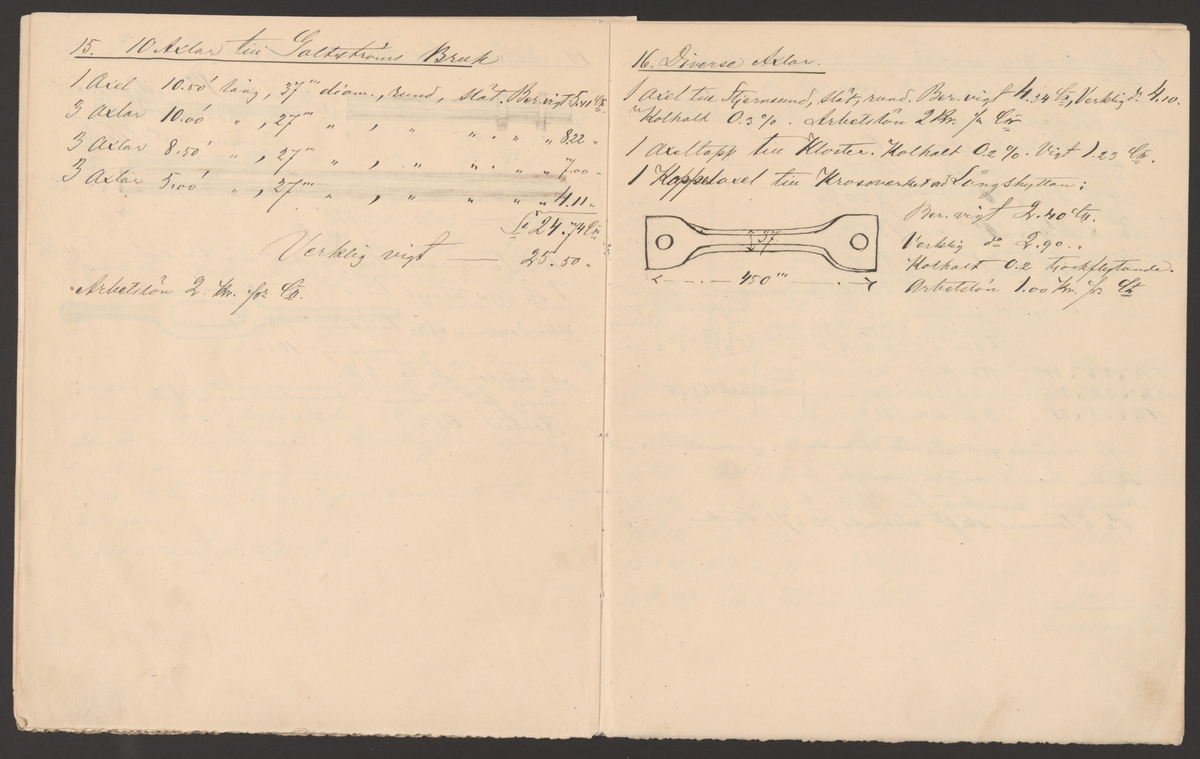 15. 10 Axlar till Galtströms Bruk
1 Axel 10.50' lång, 37''' diam., rund, slät. Ber. vigt 5.41 Ctr.
3 Axlar 10.00' " , 27''' " , " , " " " 8.22 "
3 Axlar 8.50' " , 27''' " , " , " " " 7.00 "
3 Axlar 5.00' " , 27''' " , " , " " " 4.11 "
24.74 Ctr
Verklig vigt — 25.50 "
Arbetslön 2. Kr. pr Ctr.
16. Diverse Axlar.
1 Axel till Stjernsund, slät, rund. Ber. vigt 4.34 Ctr, Verklig do 4.10.
Kolhalt 0.3 %. Arbetslön 2 Kr. pr Ctr
1 Axeltapp till Kloster. Kolhalt 0.2 %. Vigt 1.23 Ctr.
1 Koppelaxel till Krossverket vid Långshyttan:
Ber. vigt 2.40 Ctr.
37
Verklig do 2.90 "
Kolhalt 0.2 trögflytande.
450'''
Arbetslön 1.00 Kr. pr Ctr